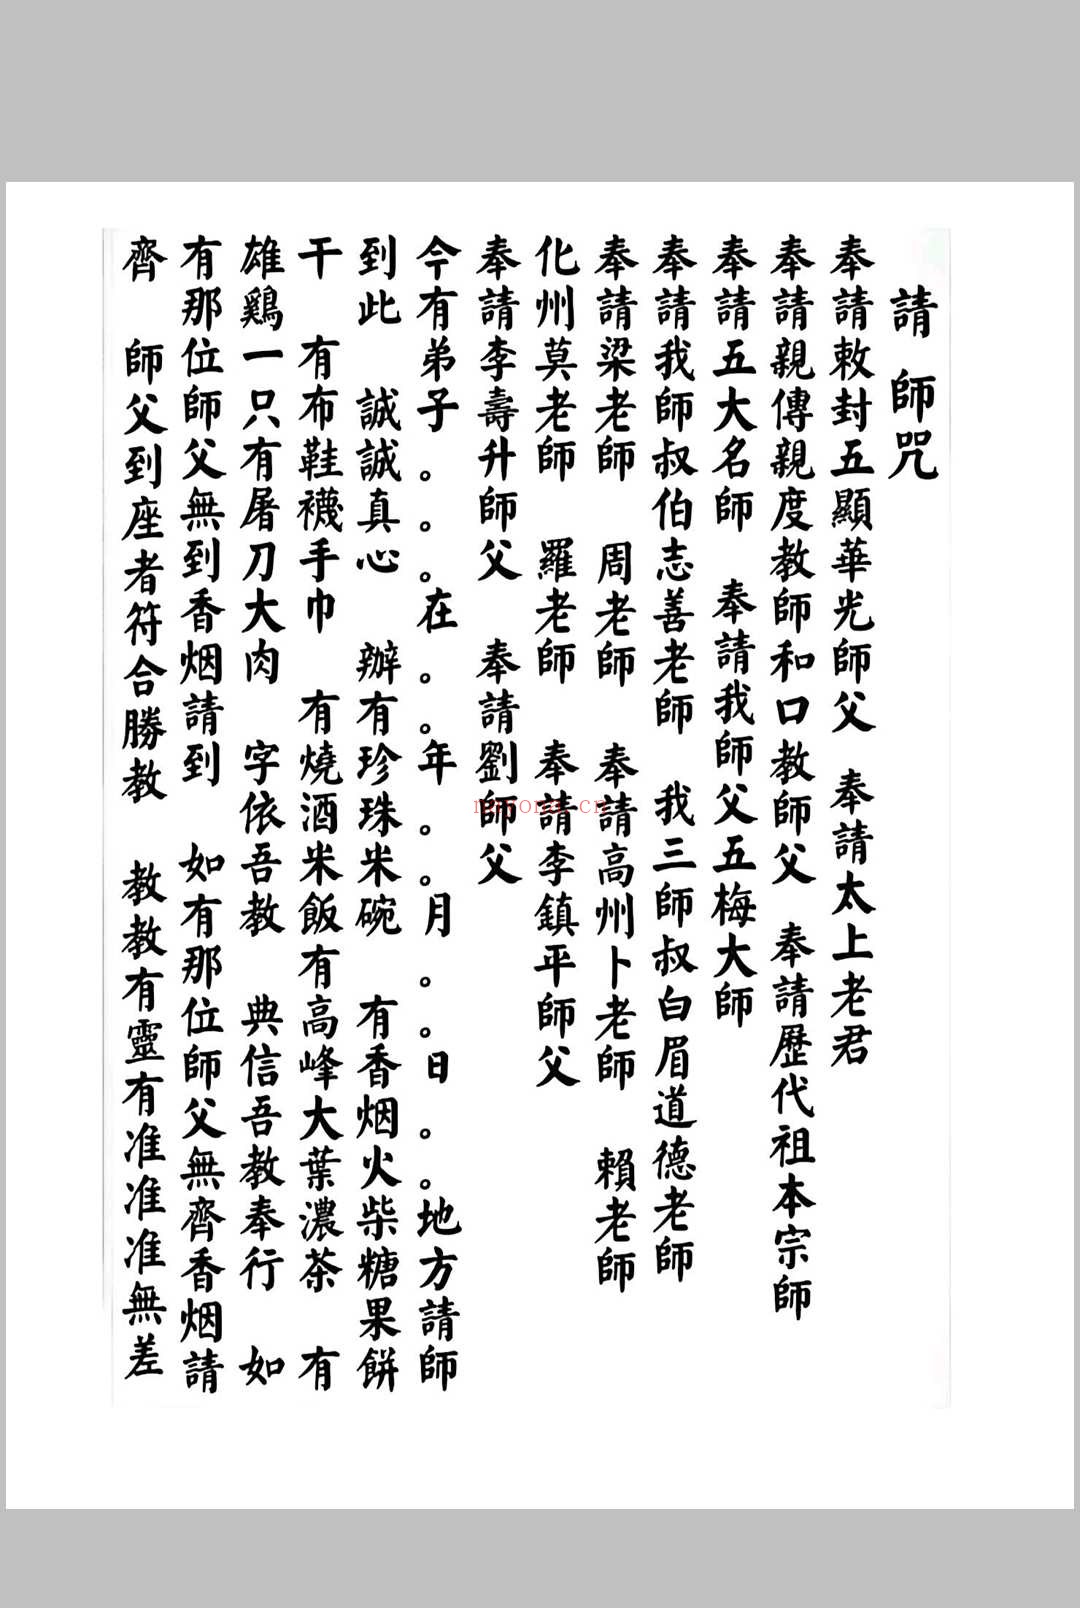 請師咒
奉請敕封五顯華光師父 奉請太上老君
奉請親傳親度教師和口教師父 奉請歷代祖本宗師
奉請五大名師 奉請我師父五梅大師
奉請我師叔伯志善老師 我三師叔白眉道德老師
奉請梁老師 周老師 奉請高州卜老師 賴老師
化州莫老師 羅老師 奉請李鎮平師父
奉請李壽升師父 奉請劉師父
今有弟子。。。在。。年。。月。。日。。地方請師
到此 誠誠真心 辦有珍珠米碗 有香烟火柴糖果餅
干 有布鞋襪手巾 有燒酒米飯有高峰大葉濃茶 有
雄鷄一只有屠刀大肉 字依吾教 典信吾教奉行 如
有那位師父無到香烟請到 如有那位師父無齊香烟請
齊 師父到座者符合勝教 教教有靈有准准准無差
nayona.cn